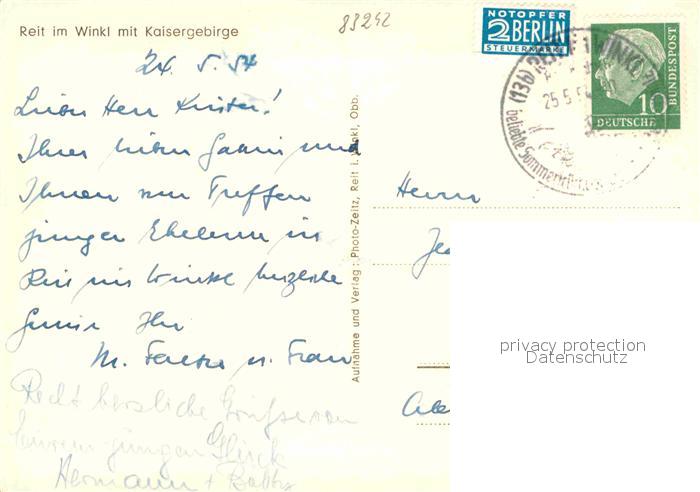 Reit im Winkl mit Kaisergebirge
83242
24. 5. 54
Lieber Herr
Ihrer lieben und
Ihnen vom Treffen
junger Eheleute in
Reit im Winkl herzliche
Ihr
M. u. Frau
Recht herzliche Grüsse von
jungen Glück
Hermann +
Aufnahme und Verlag: Photo-Zeitz, Reit i. Winkl, Obb.
NOTOPFER
2 BERLIN
STEUERMARKE
(13b) REIT I. WINKL
25.5.
beliebte Sommerfrische
10
DEUTSCHE
BUNDESPOST
Herrn
privacy protection
Datenschutz